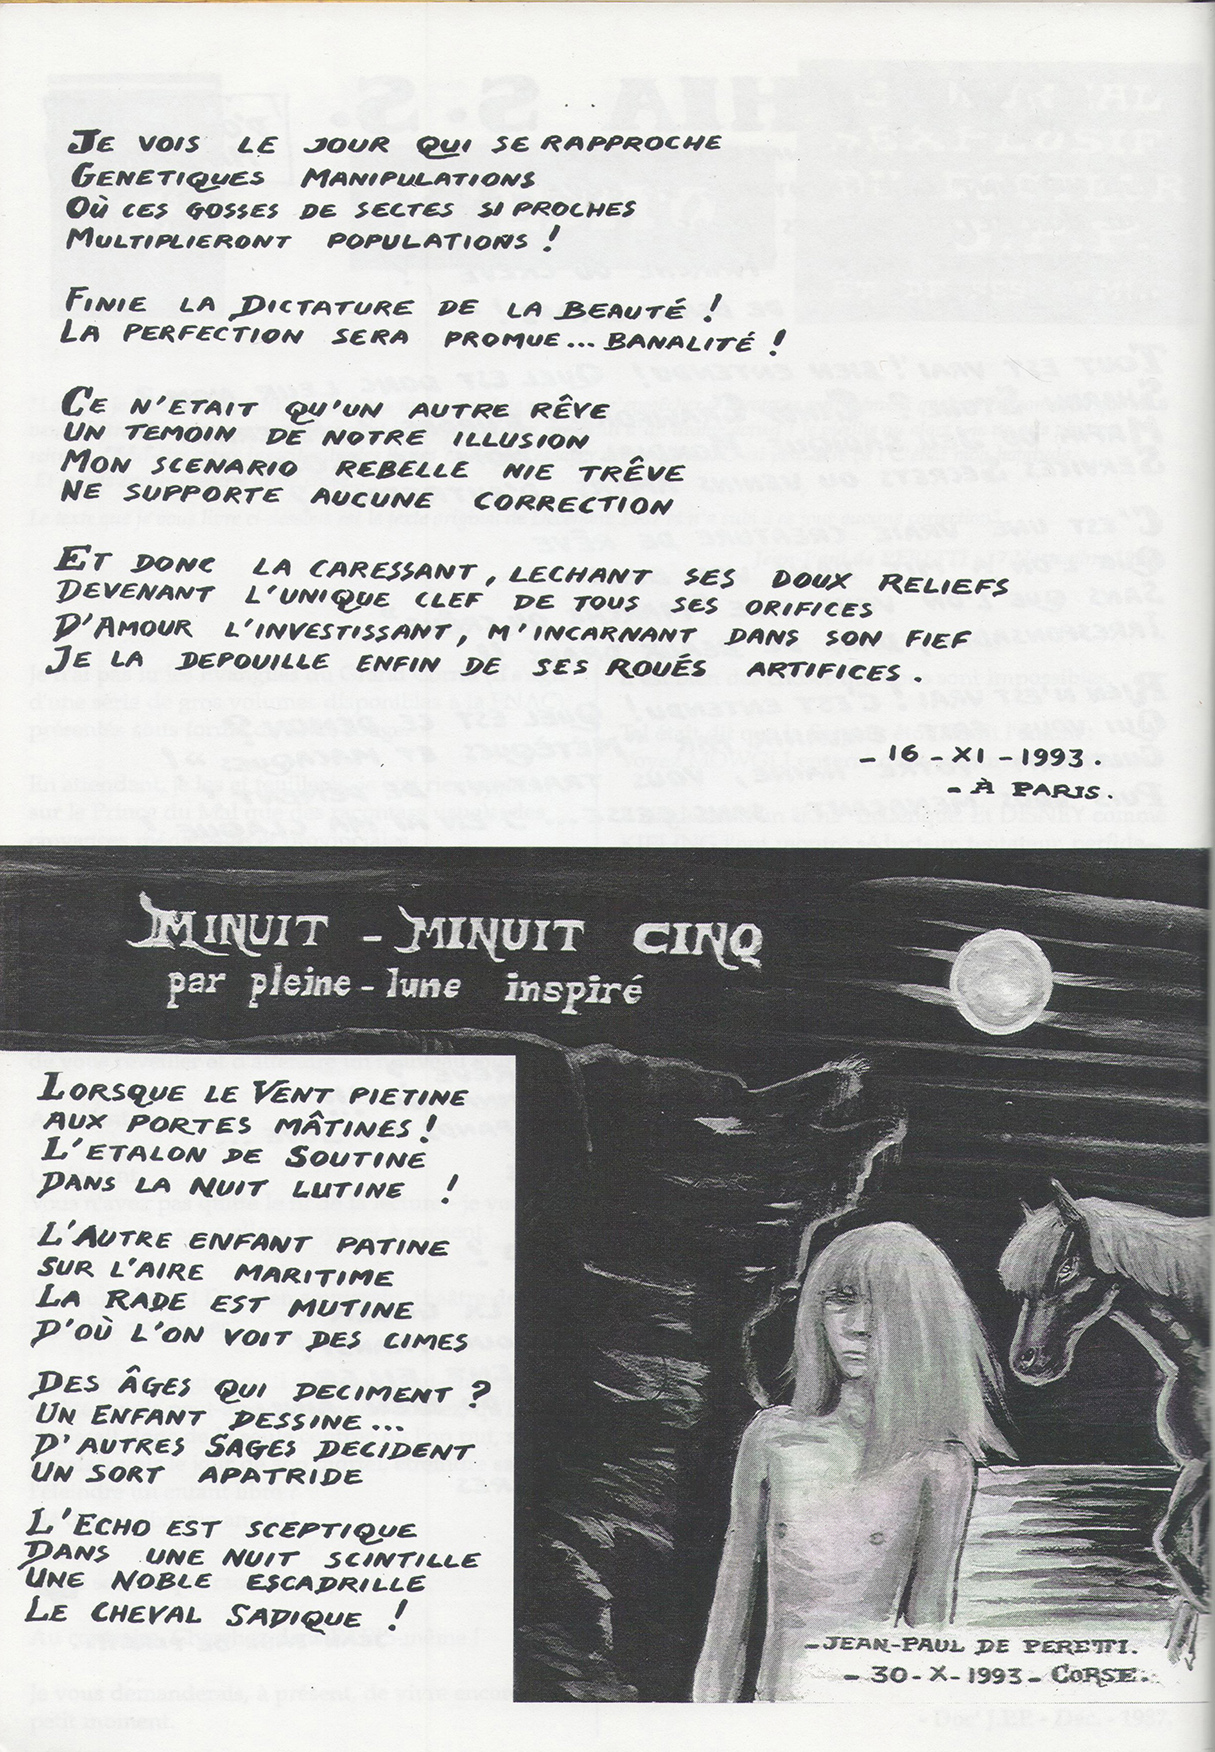 JE VOIS LE JOUR QUI SE RAPPROCHE
GENETIQUES MANIPULATIONS
OÙ CES GOSSES DE SECTES SI PROCHES
MULTIPLIERONT POPULATIONS !
FINIE LA DICTATURE DE LA BEAUTÉ !
LA PERFECTION SERA PROMUE... BANALITÉ !
CE N'ETAIT QU'UN AUTRE RÊVE
UN TEMOIN DE NOTRE ILLUSION
MON SCENARIO REBELLE NIE TRÊVE
NE SUPPORTE AUCUNE CORRECTION
ET DONC LA CARESSANT, LECHANT SES DOUX RELIEFS
DEVENANT L'UNIQUE CLEF DE TOUS SES ORIFICES
D'AMOUR L'INVESTISSANT, M'INCARNANT DANS SON FIEF
JE LA DEPOUILLE ENFIN DE SES ROUÉS ARTIFICES.
- 16 - XI - 1993.
- À PARIS.
MINUIT - MINUIT CINQ
par pleine-lune inspiré
LORSQUE LE VENT PIETINE
AUX PORTES MÂTINES !
L'ETALON DE SOUTINE
DANS LA NUIT LUTINE !
L'AUTRE ENFANT PATINE
SUR L'AIRE MARITIME
LA RADE EST MUTINE
D'OÙ L'ON VOIT DES CIMES
DES ÂGES QUI DECIMENT ?
UN ENFANT DESSINE...
D'AUTRES SAGES DECIDENT
UN SORT APATRIDE
L'ECHO EST SCEPTIQUE
DANS UNE NUIT SCINTILLE
UNE NOBLE ESCADRILLE
LE CHEVAL SADIQUE !
- JEAN-PAUL DE PERETTI.
- 30 - X - 1993 - CORSE.